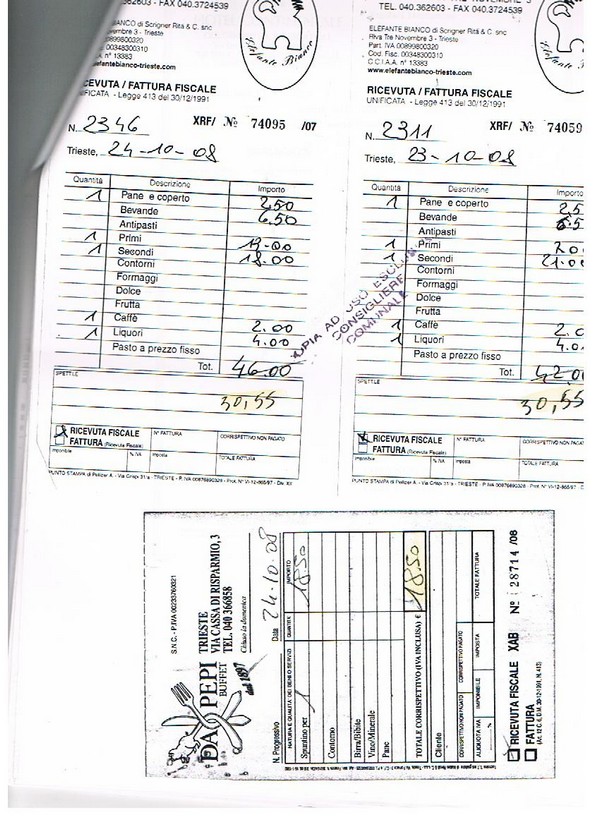 040.362603 - FAX 040.3724539
BIANCO di Scrigner Rita & C. snc
Novembre 3 - Trieste
00899800320
00348300310
A. n° 13383
elefantebianco-trieste.com
Elefante Bianco
RICEVUTA / FATTURA FISCALE
UNIFICATA - Legge 413 del 30/12/1991
N. 2346 XRF/ № 74095 /07
Trieste, 24-10-08
Quantità Descrizione Importo
1 Pane e coperto 2,50
Bevande 6,50
Antipasti
1 Primi 13-00
1 Secondi 18.00
Contorni
Formaggi
Dolce
Frutta
1 Caffè 2.00
1 Liquori 4.00
Pasto a prezzo fisso
Tot. 46.00
SPETT.LE
30,55
RICEVUTA FISCALE
FATTURA (Ricevuta Fiscale)
N° FATTURA
CORRISPETTIVO NON PAGATO
Imponibile % IVA Imposta TOTALE FATTURA
TEL. 040.362603 - FAX 040.3724539
ELEFANTE BIANCO di Scrigner Rita & C. snc
Riva Tre Novembre 3 - Trieste
Part. IVA 00899800320
Cod. Fisc. 00348300310
C.C.I.A.A. n° 13383
www.elefantebianco-trieste.com
Elefante
RICEVUTA / FATTURA FISCALE
UNIFICATA - Legge 413 del 30/12/1991
N. 2311 XRF/ № 74059
Trieste, 23-10-08
Quantità Descrizione Importo
1 Pane e coperto 2,5
Bevande
Antipasti
1 Primi
1 Secondi 21.00
Contorni
Formaggi
Dolce
Frutta
1 Caffè 2.0
1 Liquori 4.0
Pasto a prezzo fisso
Tot. 42.00
SPETT.LE
30,55
RICEVUTA FISCALE
FATTURA (Ricevuta Fiscale)
N° FATTURA
CORRISPETTIVO NON PAGATO
Imponibile % IVA Imposta TOTALE FATTURA
COPIA AD USO ESCLUSIVO
CONSIGLIERE
COMUNALE
DA PEPI
BUFFET
dal 1897
S.N.C. - P.IVA 00233760321
TRIESTE
VIA CASSA DI RISPARMIO, 3
TEL. 040 366858
Chiuso la domenica
N. Progressivo Data 24-10-08
NATURA E QUALITÀ DEI BENI O SERVIZI QUANTITÀ IMPORTO
Spuntino per 1 18.50
Contorno
Birra/Bibite
Vino/Minerale
Pane
TOTALE CORRISPETTIVO (IVA INCLUSA) € 18.50
Cliente
CORRISPETTIVO NON PAGATO CORRISPETTIVO PAGATO
ALIQUOTA IVA IMPONIBILE IMPOSTA TOTALE FATTURA
%
RICEVUTA FISCALE XAB N° 28714 /08
FATTURA